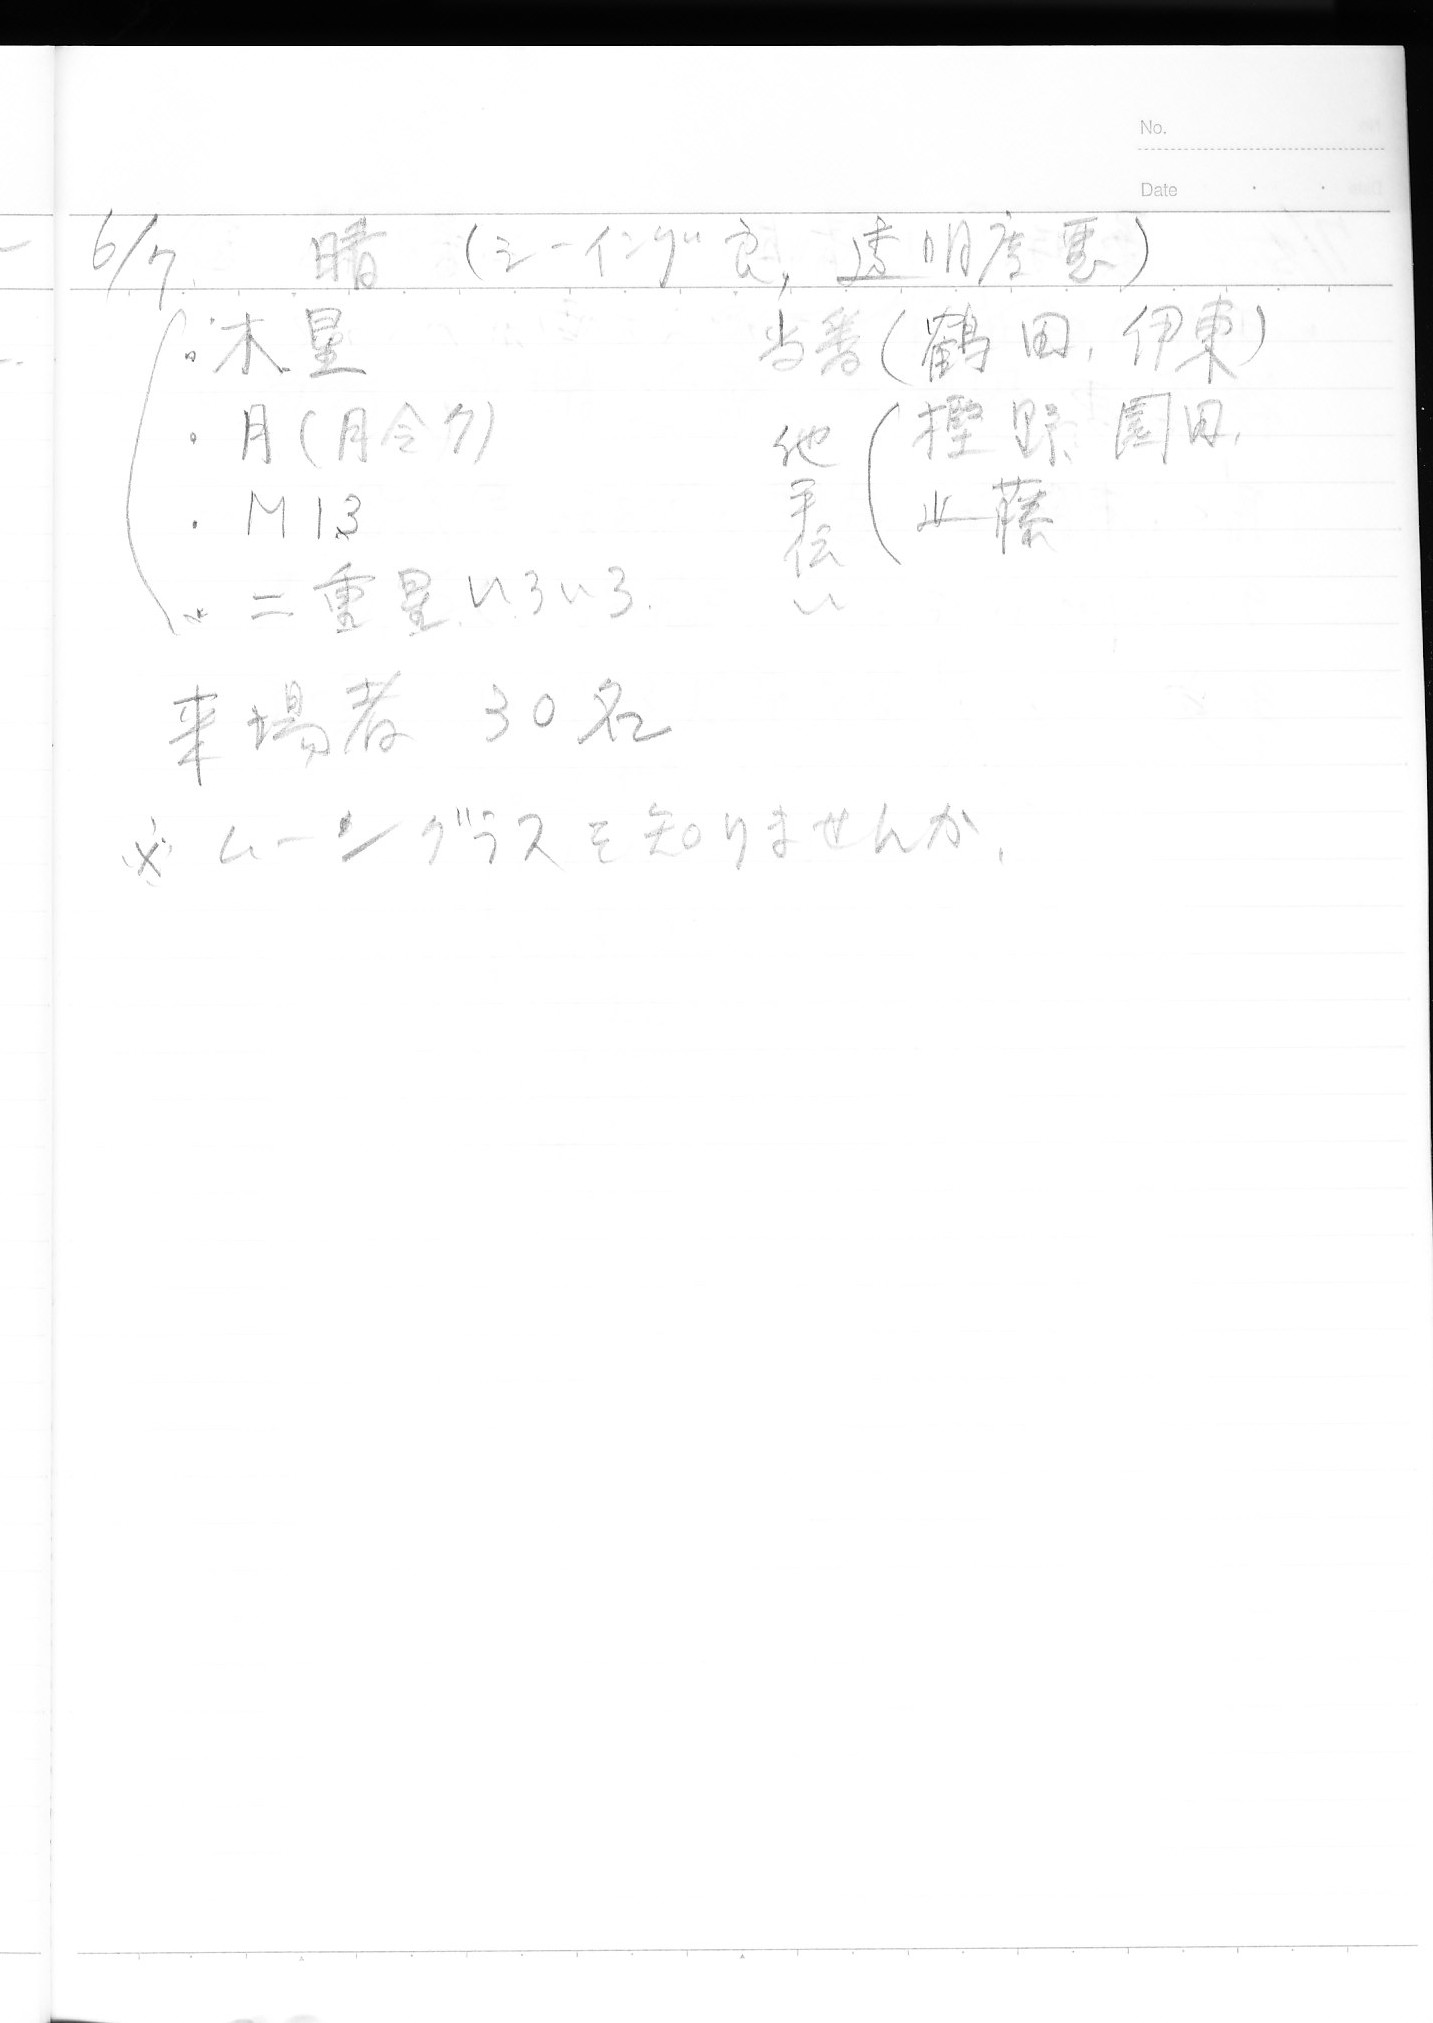 No.
Date
6/7 晴 (シーイング良, 透明度悪)
・木星
・月(月令7)
・M13
・二重星いろいろ.
当番(鶴田, 伊東)
他手伝い(樫野, 園田,
近藤
来場者 30名
※ ムーングラスを知りませんか.